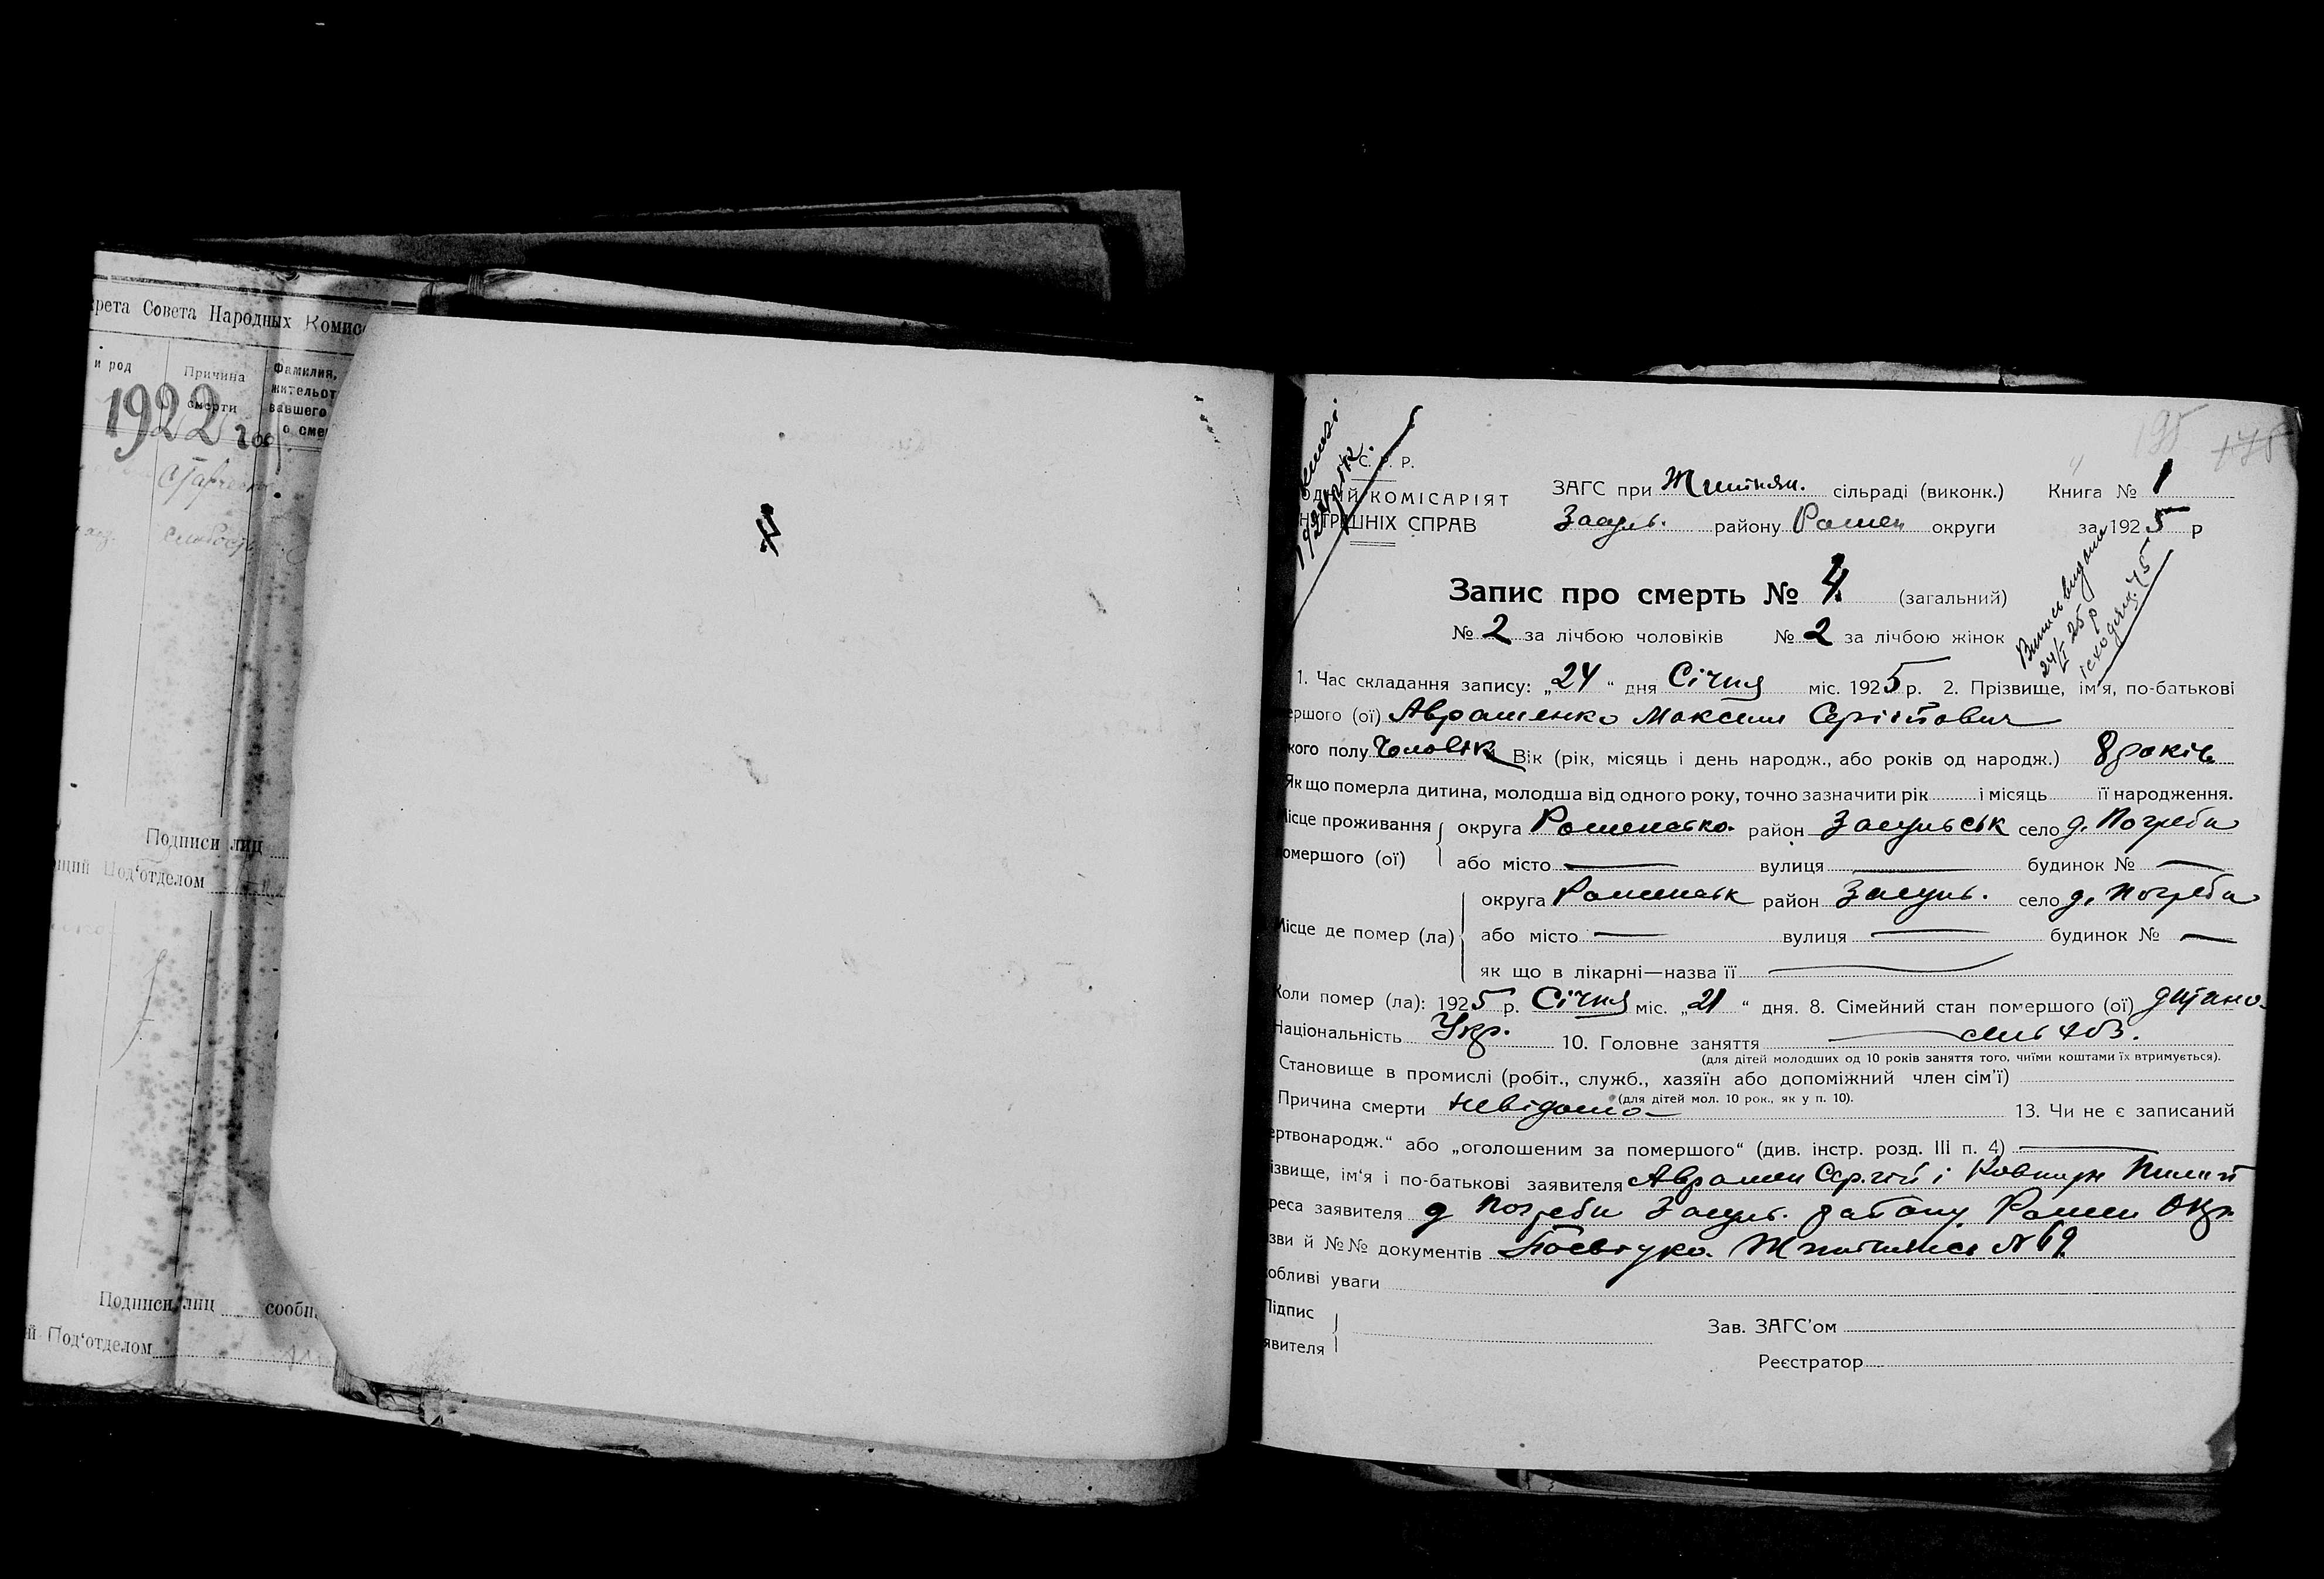 крета Совета Народных Комисс
и род
Причина
смерти
Фамилия,
жительст
вавшего
о смер
1922 год
Подписи лиц
щий Под'отделом
Подписи лиц сообщ
ий Под'отделом
195 178
С. Р. Р.
ОДНИЙ КОМІСАРІЯТ
НУТРІШНІХ СПРАВ
ЗАГС при Житнян. сільраді (виконк.) Книга № 1
Засуль. району Ромен округи за 1925 р
Запис про смерть № 4. (загальний)
№ 2 за лічбою чоловіків № 2 за лічбою жінок
Випись видана
24/I 25 р
ісходящ. 75
1. Час складання запису: „24“ дня Січня міс. 1925 р. 2. Прізвище, ім'я, по-батькові
ершого (ої) Авраменко Максим Сергійович
кого полу Чоловік Вік (рік, місяць і день народж., або років од народж.) 8 років
Як що померла дитина, молодша від одного року, точно зазначити рік і місяць її народження.
Місце проживання
омершого (ої)
округа Роменсько. район Засульськ село д. Погреби
або місто — вулиця — будинок № —
Місце де помер (ла)
округа Роменськ район Засуль. село д. Погреби
або місто — вулиця — будинок № —
як що в лікарні—назва її —
Коли помер (ла): 1925 р. Січня міс. „21“ дня. 8. Сімейний стан помершого (ої) дитина
Національність Укр. 10. Головне заняття
(для дітей молодших од 10 років заняття того, чиїми коштами їх втримується).
Становище в промислі (робіт., служб., хазяїн або допоміжний член сім'ї)
(для дітей мол. 10 рок., як у п. 10).
Причина смерти невідома 13. Чи не є записаний
ертвонародж.“ або „оголошеним за помершого“ (див. інстр. розд. III п. 4) —
ізвище, ім'я і по-батькові заявителя Аврамен Сергій і Ковпун Пилип
реса заявителя д Погреби Засуль. району Ромен Окр.
зви й №№ документів Посвідка Житнянсь № 69
обливі уваги
Підпис
явителя
Зав. ЗАГС'ом
Реєстратор